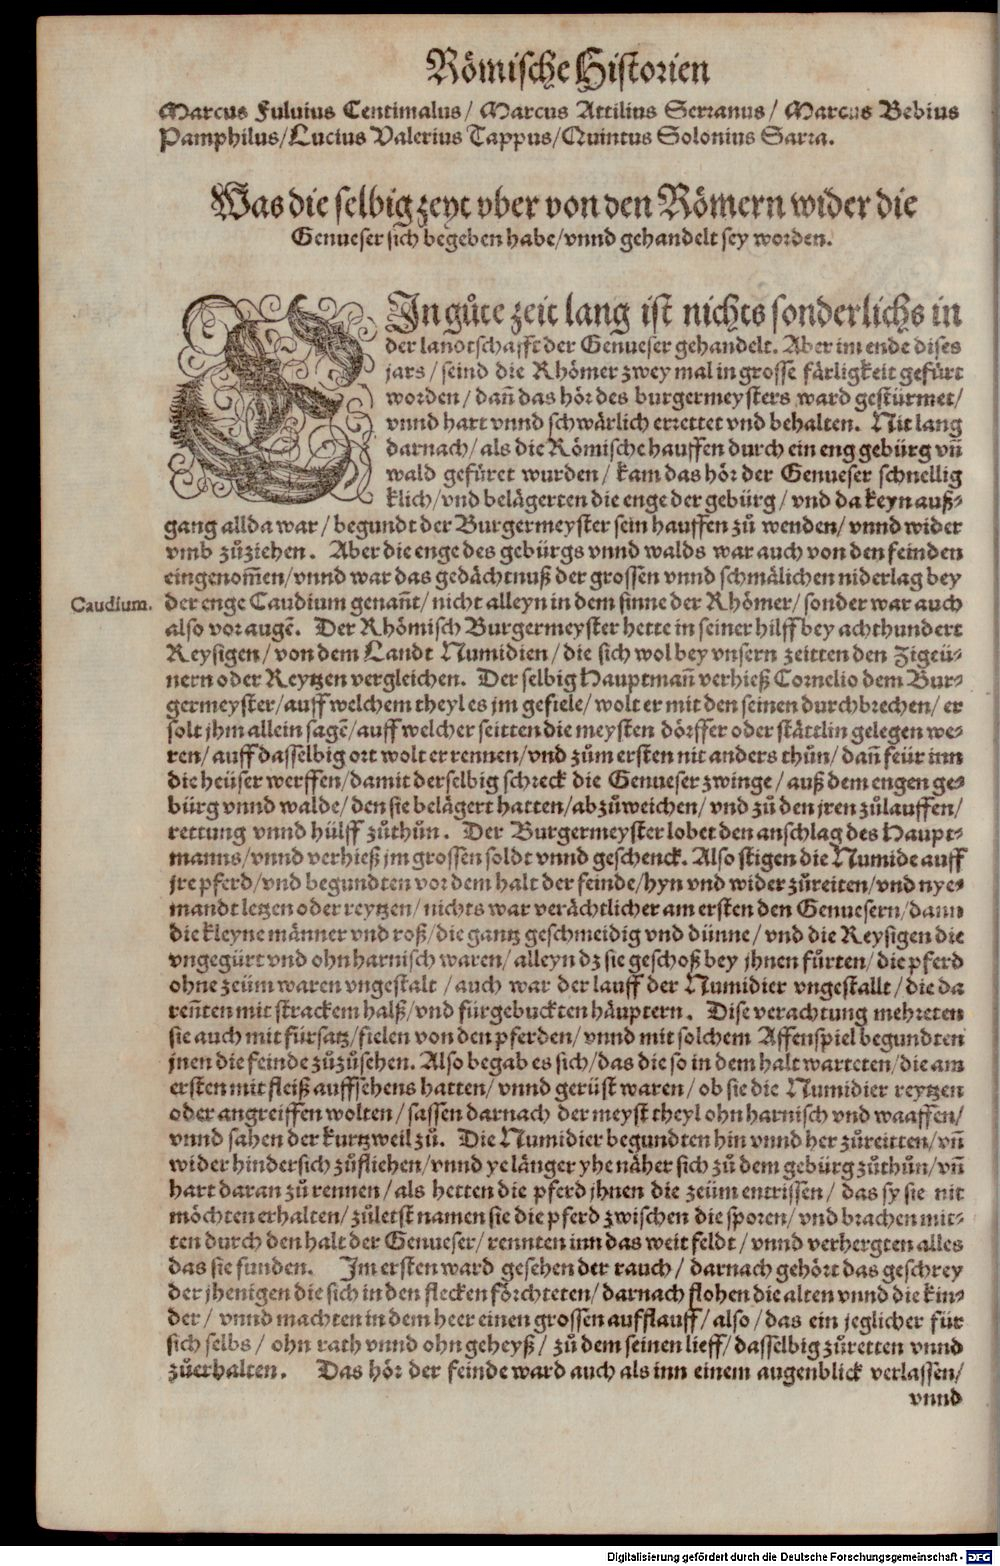 Römische Historien
Marcus Fuluius Centimalus/ Marcus Attilius Serranus/ Marcus Bebius
Pamphilus/Lucius Valerius Tappus/Quintus Solonius Sarra.
Was die selbig zeyt vber von den Römern wider die
Genueser sich begeben habe/vnnd gehandelt sey worden.
EIn gůte zeit lang ist nichts sonderlichs in
der landtschafft der Genueser gehandelt. Aber im ende dises
jars/ seind die Rhömer zwey mal in grosse färligkeit gefürt
worden/ dañ das hör des burgermeysters ward gestürmet/
vnnd hart vnnd schwärlich errettet vnd behalten. Nit lang
darnach/ als die Römische hauffen durch ein eng gebürg vñ
wald gefüret wurden/ kam das hör der Genueser schnellig
klich/vnd belägerten die enge der gebürg/ vnd da keyn auß-
gang allda war/ begundt der Burgermeyster sein hauffen zů wenden/ vnnd wider
vmb zůziehen. Aber die enge des gebürgs vnnd walds war auch von den feinden
eingenom̃en/vnnd war das gedächtnuß der grossen vnnd schmälichen niderlag bey
Caudium. der enge Caudium genañt/ nicht alleyn in dem sinne der Rhömer/ sonder war auch
also vor augẽ. Der Rhömisch Burgermeyster hette in seiner hilff bey achthundert
Reysigen/ von dem Landt Numidien/ die sich wol bey vnsern zeitten den Zigeü-
nern oder Reytzen vergleichen. Der selbig Hauptmañ verhieß Cornelio dem Bur-
germeyster/auff welchem theyl es jm gefiele/ wolt er mit den seinen durchbrechen/ er
solt jhm allein sagẽ/auff welcher seitten die meysten dörffer oder stättlin gelegen we-
ren/ auff dasselbig ort wolt er rennen/vnd zům ersten nit anders thůn/ dañ feür inn
die heüser werffen/damit derselbig schreck die Genueser zwinge/ auß dem engen ge-
bürg vnnd walde/ den sie belägert hatten/abzůweichen/ vnd zů den jren zůlauffen/
rettung vnnd hülff zůthůn. Der Burgermeyster lobet den anschlag des Haupt-
manns/vnnd verhieß jm grossen soldt vnnd geschenck. Also stigen die Numide auff
jre pferd/vnd begundten vor dem halt der feinde/hyn vnd wider zůreiten/vnd nye-
mandt letzen oder reytzen/ nichts war verächtlicher am ersten den Genuesern/dann
die kleyne männer vnd roß/die gantz geschmeidig vnd dünne/ vnd die Reysigen die
vngegürt vnd ohn harnisch waren/ alleyn dz sie geschoß bey jhnen fürten/die pferd
ohne zeüm waren vngestalt/auch war der lauff der Numidier vngestallt/die da
reñten mit strackem halß/vnd fürgebuckten häuptern. Dise verachtung mehreten
sie auch mit fürsatz/fielen von den pferden/ vnnd mit solchem Affenspiel begundten
jnen die feinde zůzůsehen. Also begab es sich/das die so in dem halt warteten/die am
ersten mit fleiß auffsehens hatten/ vnnd gerüst waren/ ob sie die Numidier reytzen
oder angreiffen wolten/sassen darnach der meyst theyl ohn harnisch vnd waaffen/
vnnd sahen der kurtzweil zů. Die Numidier begundten hin vnnd her zůreitten/vñ
wider hindersich zůfliehen/vnnd ye länger yhe näher sich zů dem gebürg zůthůn/vñ
hart daran zů rennen/als hetten die pferd jhnen die zeüm entrissen/ das sy sie nit
möchten erhalten/zůletst namen sie die pferd zwischen die sporen/ vnd brachen mit-
ten durch den halt der Genueser/ rennten inn das weit feldt/vnnd verhergten alles
das sie funden. Im ersten ward gesehen der rauch/ darnach gehört das geschrey
der jhenigen die sich in den flecken förchteten/darnach flohen die alten vnnd die kin-
der/ vnnd machten in dem heer einen grossen aufflauff/ also/ das ein jeglicher für
sich selbs/ ohn rath vnnd ohn geheyß/ zů dem seinen lieff/dasselbig zůretten vnnd
zůerhalten. Das hör der feinde ward auch als inn einem augenblick verlassen/
vnnd
Digitalisierung gefördert durch die Deutsche Forschungsgemeinschaft - DFG